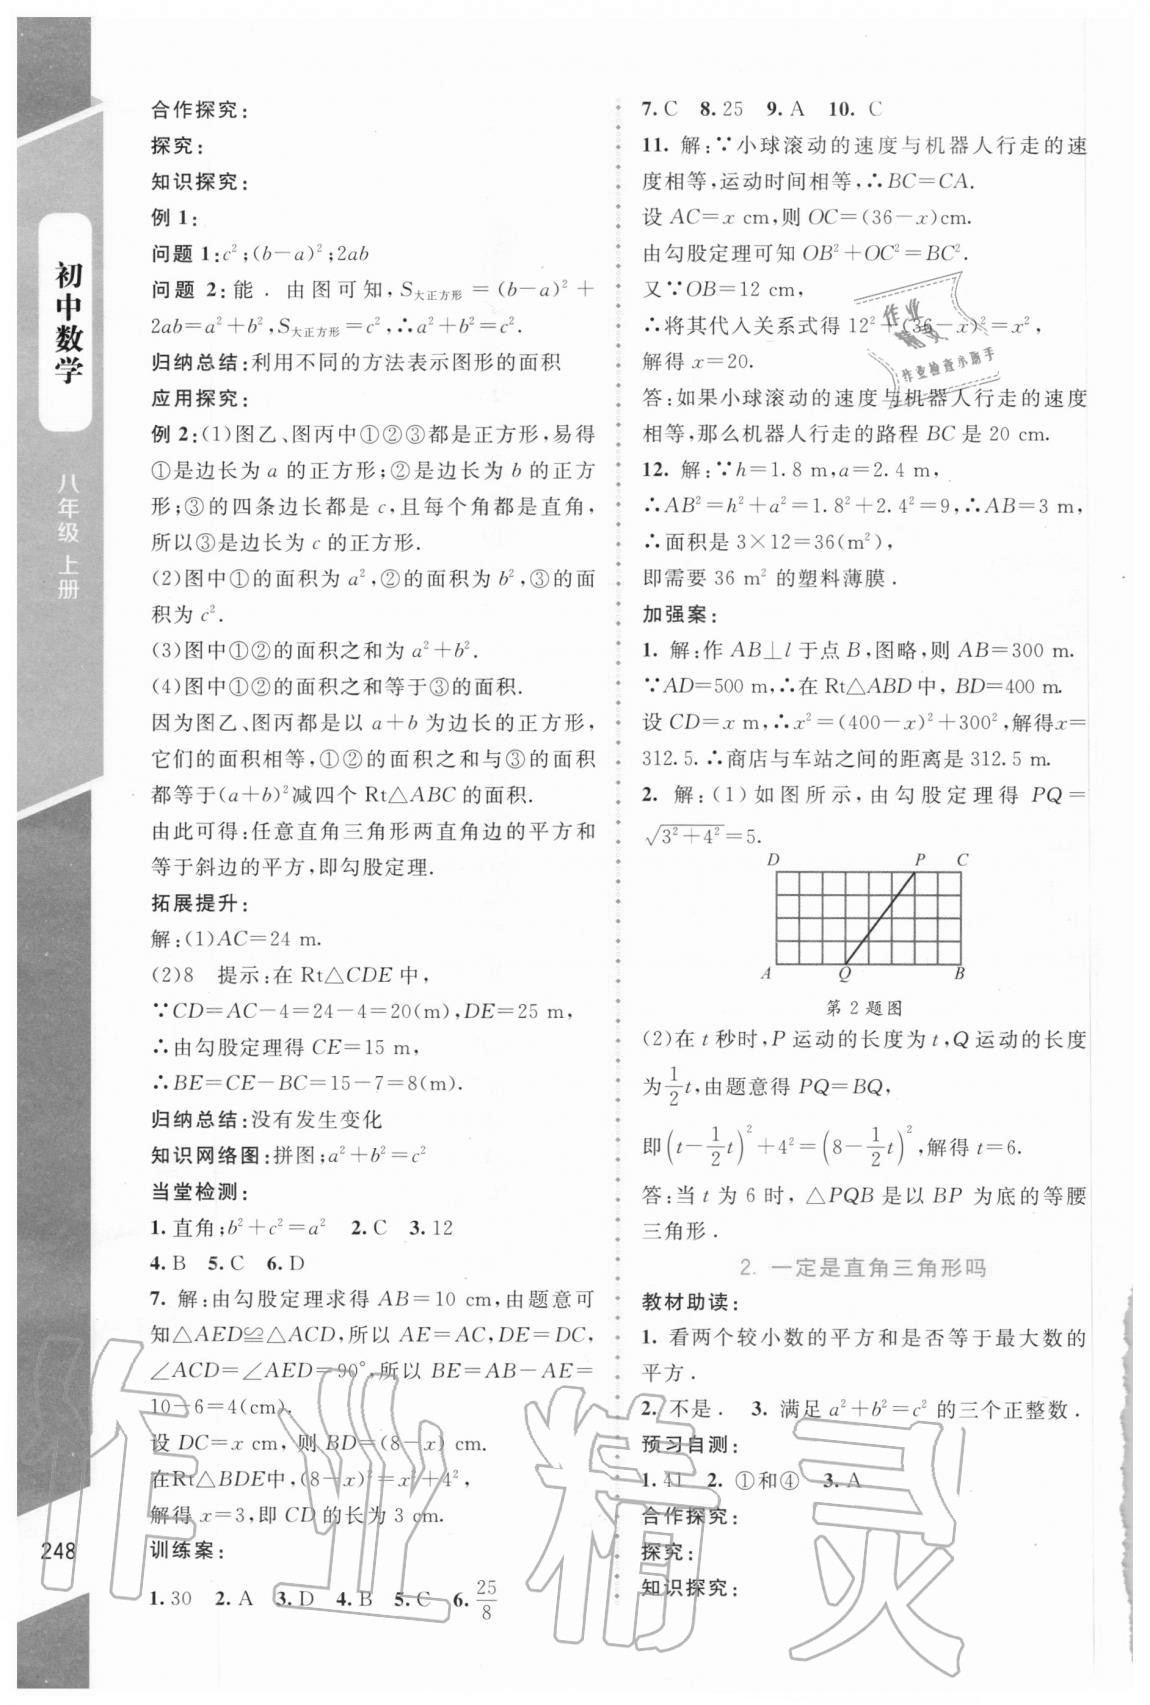 初中数学
八年级 上册
248
合作探究:
探究:
知识探究:
例 1:
问题 1:c²;(b－a)²;2ab
问题 2:能．由图可知,S大正方形＝(b－a)²＋
2ab＝a²＋b²,S大正方形＝c²,∴a²＋b²＝c².
归纳总结:利用不同的方法表示图形的面积
应用探究:
例 2:(1)图乙、图丙中①②③都是正方形,易得
①是边长为 a 的正方形;②是边长为 b 的正方
形;③的四条边长都是 c,且每个角都是直角,
所以③是边长为 c 的正方形.
(2)图中①的面积为 a²,②的面积为 b²,③的面
积为 c².
(3)图中①②的面积之和为 a²＋b².
(4)图中①②的面积之和等于③的面积.
因为图乙、图丙都是以 a＋b 为边长的正方形,
它们的面积相等,①②的面积之和与③的面积
都等于(a＋b)²减四个 Rt△ABC 的面积.
由此可得:任意直角三角形两直角边的平方和
等于斜边的平方,即勾股定理.
拓展提升:
解:(1)AC＝24 m.
(2)8　提示:在 Rt△CDE 中,
∵CD＝AC－4＝24－4＝20(m),DE＝25 m,
∴由勾股定理得 CE＝15 m,
∴BE＝CE－BC＝15－7＝8(m).
归纳总结:没有发生变化
知识网络图:拼图;a²＋b²＝c²
当堂检测:
1.直角;b²＋c²＝a²　2.C　3.12
4.B　5.C　6.D
7. 解:由勾股定理求得 AB＝10 cm,由题意可
知△AED≌△ACD,所以 AE＝AC,DE＝DC,
∠ACD＝∠AED＝90°,所以 BE＝AB－AE＝
10－6＝4(cm).
设 DC＝x cm,则 BD＝(8－x) cm.
在Rt△BDE中,(8－x)²＝x²＋4²,
解得 x＝3,即 CD 的长为 3 cm.
训练案:
1.30　2.A　3.D　4.B　5.C　6.25/8
7.C　8.25　9.A　10. C
11. 解:∵小球滚动的速度与机器人行走的速
度相等,运动时间相等,∴BC＝CA.
设 AC＝x cm,则 OC＝(36－x)cm.
由勾股定理可知 OB²＋OC²＝BC².
又∵OB＝12 cm,
∴将其代入关系式得 12²＋(36－x)²＝x²,
解得 x＝20.
答:如果小球滚动的速度与机器人行走的速度
相等,那么机器人行走的路程 BC 是 20 cm.
12. 解:∵h＝1.8 m,a＝2.4 m,
∴AB²＝h²＋a²＝1.8²＋2.4²＝9,∴AB＝3 m,
∴面积是 3×12＝36(m²),
即需要 36 m² 的塑料薄膜．
加强案:
1. 解:作 AB⊥l 于点 B,图略,则 AB＝300 m.
∵AD＝500 m,∴在 Rt△ABD 中, BD＝400 m.
设 CD＝x m,∴x²＝(400－x)²＋300²,解得x＝
312.5.∴商店与车站之间的距离是 312.5 m.
2. 解:(1)如图所示,由勾股定理得 PQ＝
√(3²＋4²)＝5.
D P C
A Q B
第 2 题图
(2)在 t 秒时,P 运动的长度为 t,Q 运动的长度
为1/2t,由题意得 PQ＝BQ,
即(t－1/2t)²＋4²＝(8－1/2t)²,解得 t＝6.
答:当 t 为 6 时,△PQB 是以 BP 为底的等腰
三角形．
2. 一定是直角三角形吗
教材助读:
1. 看两个较小数的平方和是否等于最大数的
平方．
2. 不是．　3. 满足 a²＋b²＝c² 的三个正整数．
预习自测:
1.41　2. ①和④　3.A
合作探究:
探究:
知识探究:
作业
精灵
作业检查小助手
作业精灵